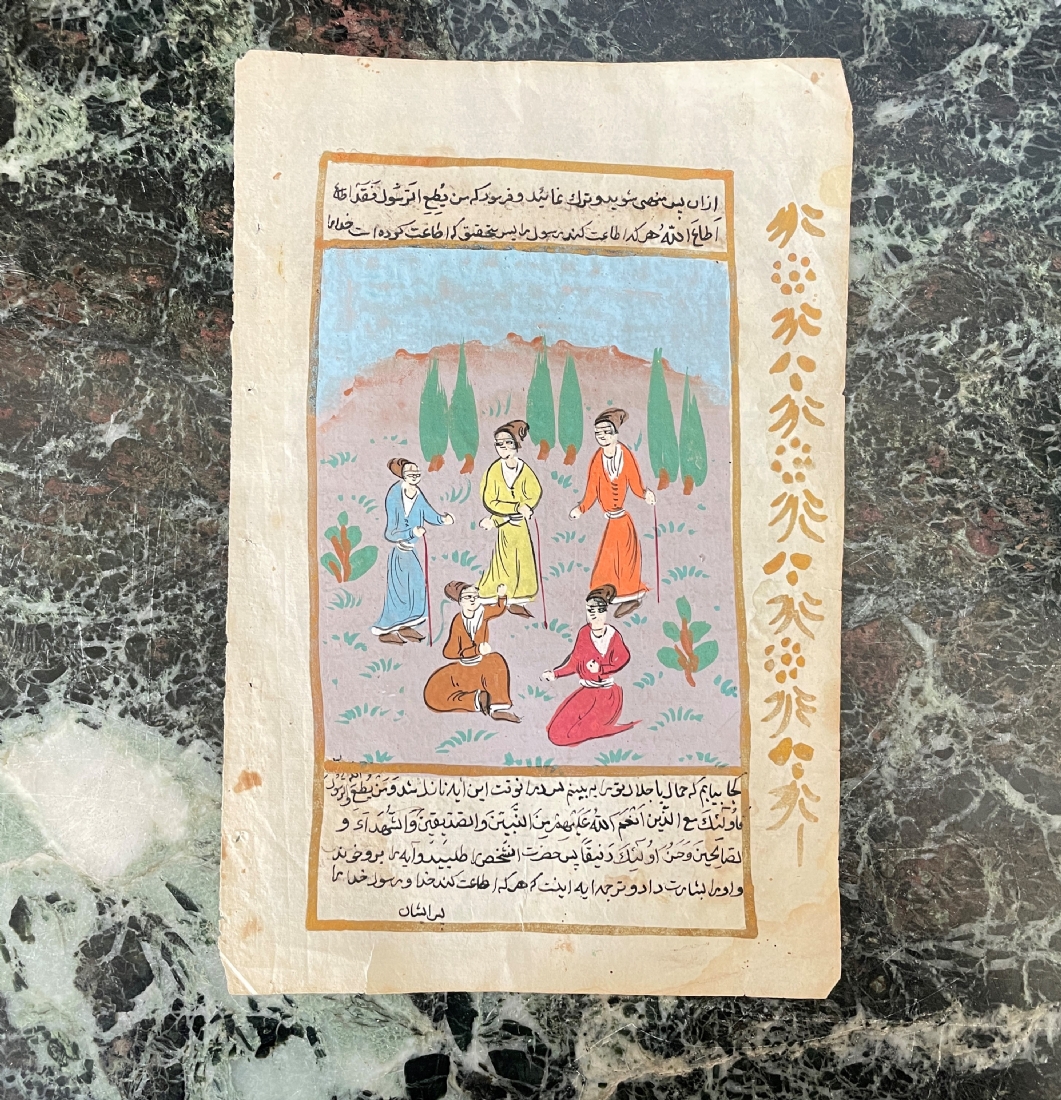 ازان پس منهی شوید و ترک نمائید و فرمود که من یُطِعِ الرَّسُولَ فَقَدْ
اطاعَ اللهَ هر که اطاعت کند رسول را پس بتحقیق که اطاعت کرده است خدا را
کجا بیابم که جمال با جلال تو را به بینم در آنوقت این آیه نازل شد وَ مَنْ یُطِعِ اللهَ وَ الرَّسُولَ
فاُولٰئِکَ مَعَ الَّذینَ اَنْعَمَ اللهُ عَلَیْهِمْ مِنَ النَّبیّینَ وَالصِّدّیقینَ وَالشُّهَدآءِ وَ
الصّالِحینَ وَحَسُنَ اُولٰئِکَ رَفیقاً پس حضرت آنشخص را طلبید و آیه را برو خوانند
و او را بشارت داد و ترجمه آیه اینست که هر که اطاعت کند خدا و رسول خدا را
پس ایشان